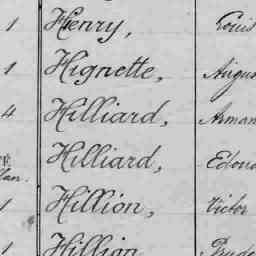 1 Henry, Louis
1 Hignette, Augus
4 Hilliard, Arman
Hilliard, Edoua
lan.
1 Hillion, Victor
1 Hillion Prude